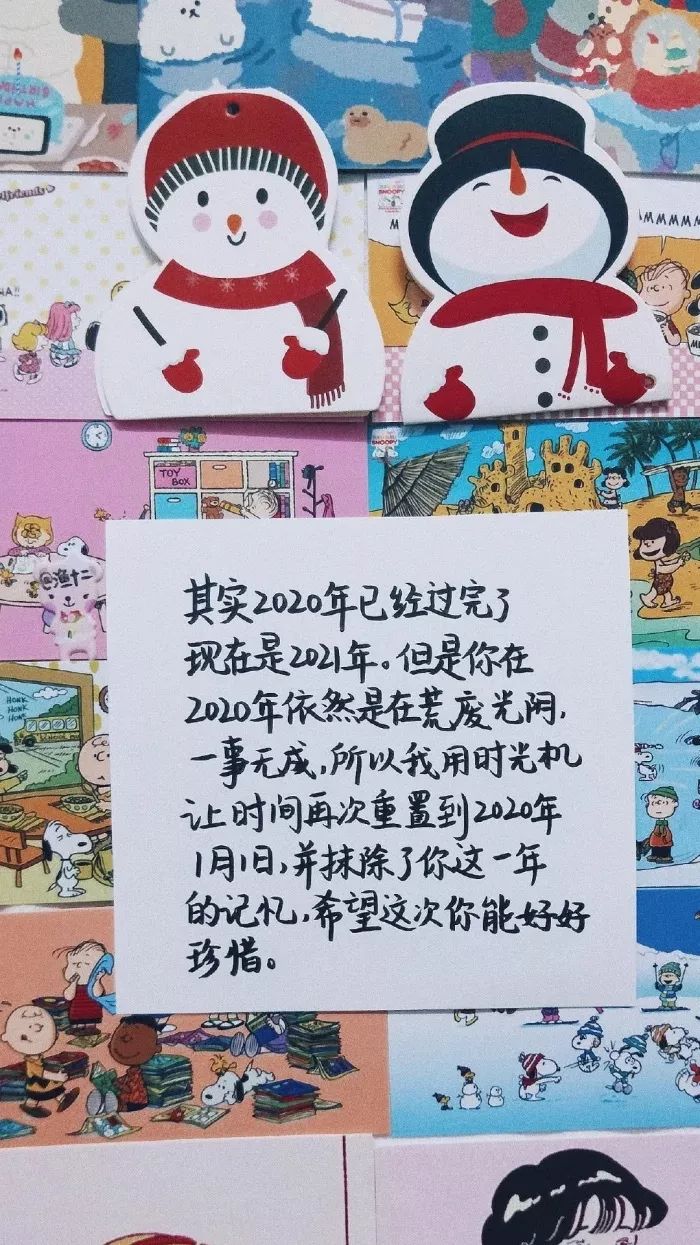 HAPPY
BIRTHDAY
SNOOPY
MMMMMM
TOY
BOX
SNOOPY
@渔十二
HONK
HONK
HONK
其实2020年已经过完了
现在是2021年。但是你在
2020年依然是在荒废光阴，
一事无成，所以我用时光机
让时间再次重置到2020年
1月1日，并抹除了你这一年
的记忆，希望这次你能好好
珍惜。